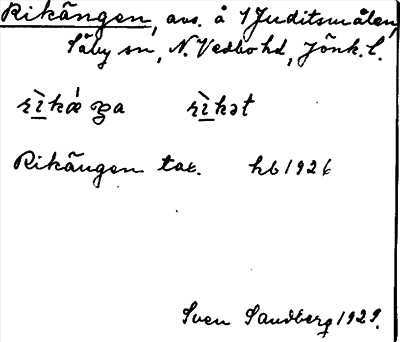 Rikängen, avs. å 1 Juditsmålen,
Säby sn, N. Vedbo hd, Jönk. l.
rìkǽŋa rìkət
Rikängen tax. hb 1926
Sven Sandberg 1929.